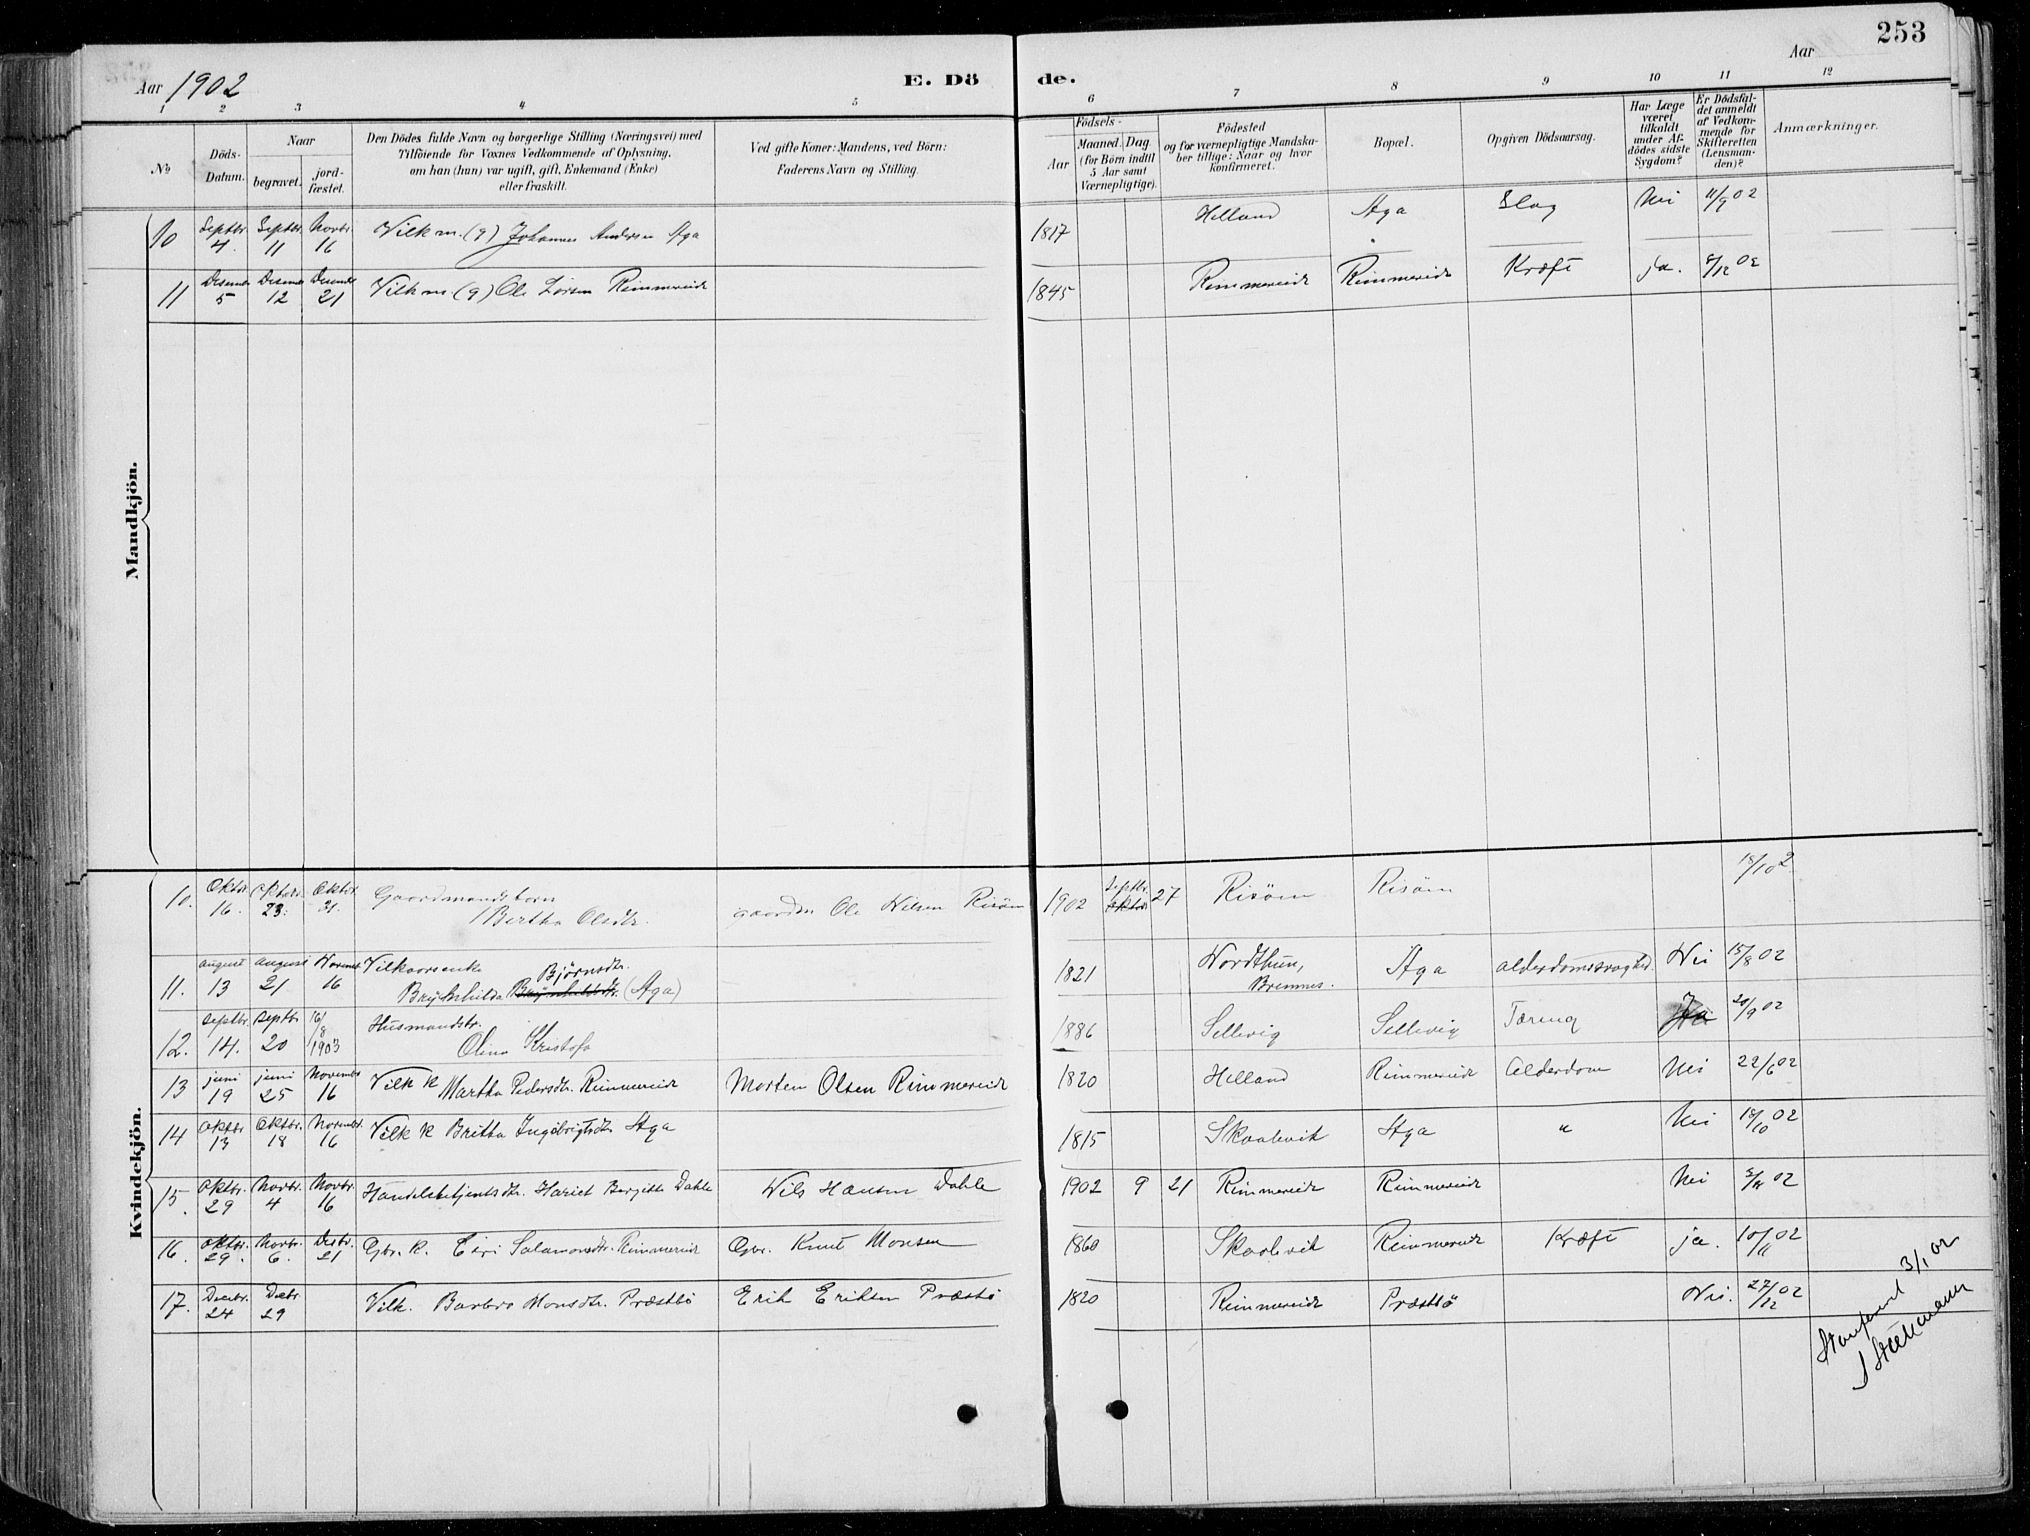 253
Aar 1902
E. Dö
de.
Aar
1 2 3 4 5 6 7 8 9 10 11 12
№
Döds-Datum.
Naar
begravet.
jord-fæstet.
Den Dödes fulde Navn og borgerlige Stilling (Næringsvei) med
Tilföiende for Voxnes Vedkommende af Oplysning,
om han (hun) var ugift, gift, Enkemand (Enke)
eller fraskilt.
Ved gifte Koner: Mandens, ved Börn:
Faderens Navn og Stilling.
Födsels-
Aar
Maaned. Dag
(for Börn indtil
5 Aar samt
Værnepligtige).
Födested
og for værnepligtige Mandska-
ber tillige: Naar og hvor
konfirmeret.
Bopæl.
Opgiven Dödsaarsag.
Har Læge
været
tilkaldt
under Af-
dödes sidste
Sygdom?
Er Dödsfal-
det anmeldt
af Vedkom-
mende for
Skifteretten
(Lensman-
den)?
Anmærkninger.
Mandkjön.
10 Septbr. 4. Septbr. 11 Novbr. 16 Vilkm. (g) Johannes Andersen Aga 1817 Helland Aga Slag Nei 11/9 02
11 Desember 5 Desember 12 Desember 21 Vilkm. (g) Ole Larsen Rimmereide 1845 Rimmereide Rimmereide Kræft ja. 8/12 02
Kvindekjön.
10. Oktbr. 16. Oktober 23. Oktbr. 31. Gaardmandsbarn
Bertha Olsdtr. gaardm Ole Nilsen Risöm 1902 Septbr. 27 Risöm Risöm 18/10 2
11. august 13 august 21 Novembr 16 Vilkaarsenke
Brynhilda Björnsdtr. (Aga) 1821 Nordthun, Bremnes. Aga alderdomssvaghed. Nei 15/8 02
12. Septbr 14. Septbr 20 16/8 1903 Husmandsdtr.
Olina Kristofa 1886 Sellevig Sellevig Tæring Ja 20/9 02
13 juni 19 juni 25 November 16 Vilk k Martha Pedersdtr. Rimmereide Morten Olsen Rimmereide 1820 Helland Rimmereide Alderdom Nei 22/6 02
14 Oktbr 13 Oktbr. 18 November 16 Vilk k Britta Ingebrigtsdtr Aga 1815 Skaalevik Aga " Nei 18/10 02
15. Oktbr. 29 Novbr. 4 Novbr. 16 Handelsbetjentsdtr. Hariet Bergitte Dahle Nils Hansen Dahle 1902 9 21 Rimmereide Rimmereide Nei 3/11 02
16. Oktbr. 29. Novbr. 6. Desbr. 21 Gbr. k. Eiri Salamonsdtr. Rimmereide Gbr. Knut Monsen 1860 Skaalevik Rimmereide Kræft ja. 10/11 02
17. Decbr. 24 Decbr 29 Vilk. Barbro Monsdtr. Præstbö Erik Eriksen Præstbö 1820 Rimmereide Præstbö Nei. 27/12 02
3/1 02